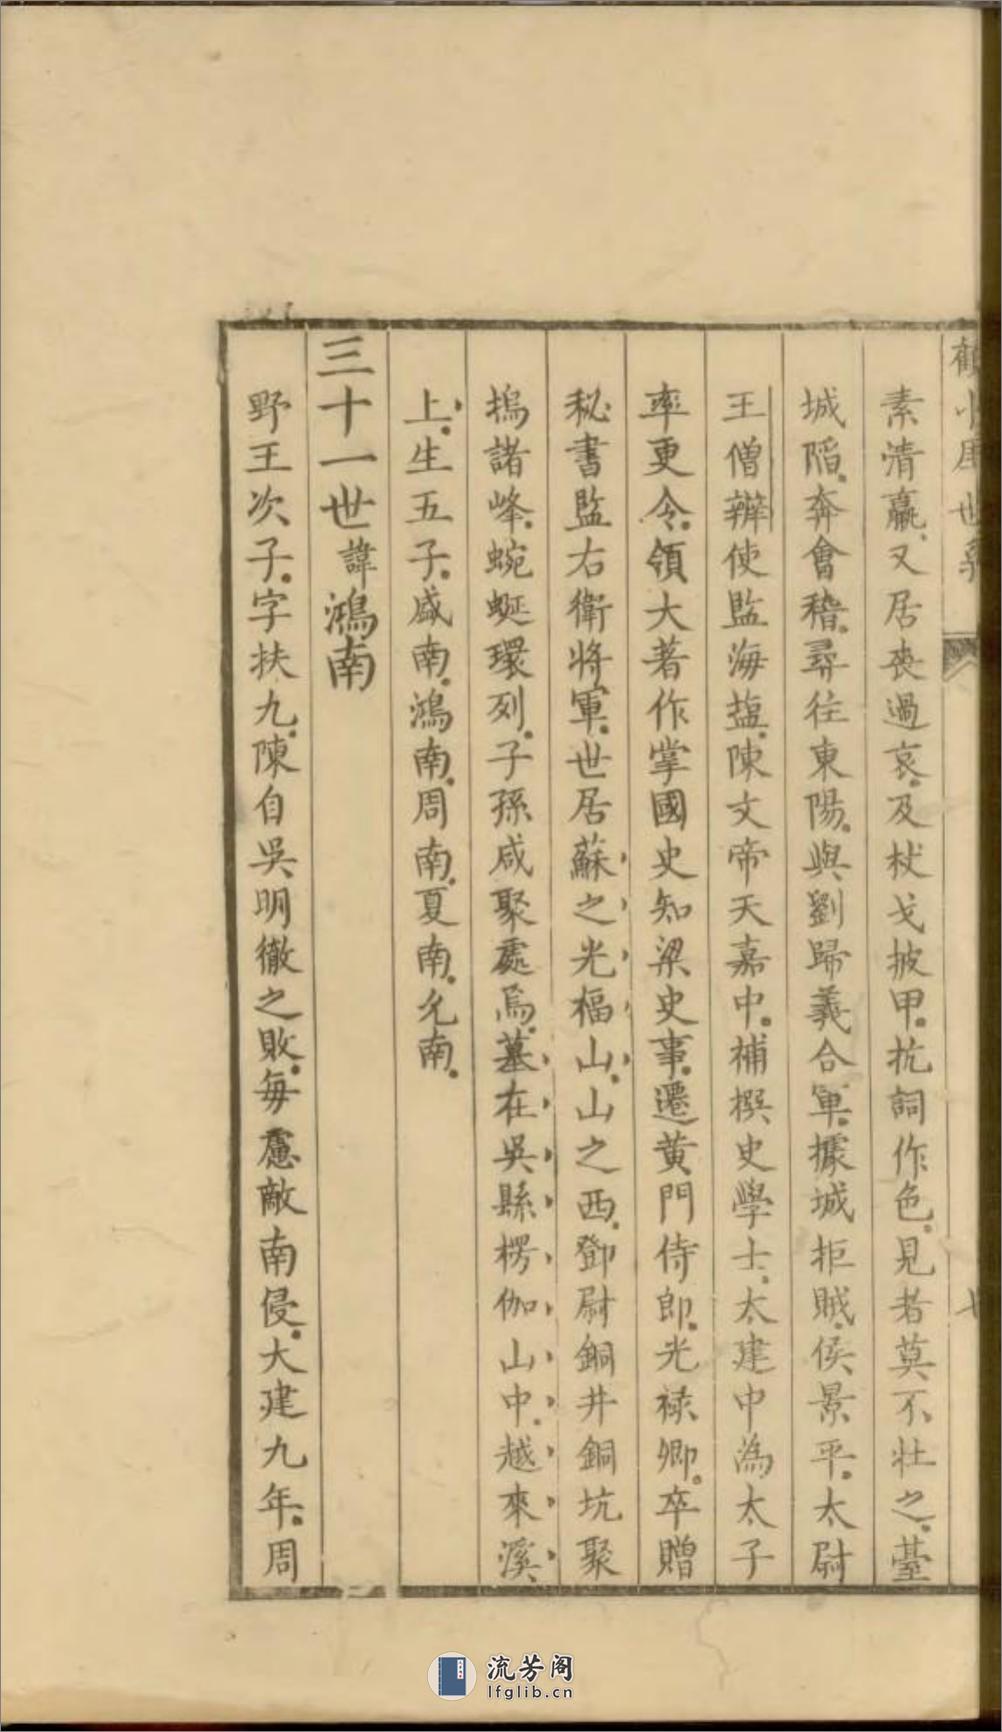 素清羸又居喪過哀及杖戈披甲抗詞作色見者莫不壯之臺
城陷奔會稽尋往東陽與劉歸義合軍據城拒賊侯景平太尉
王僧辯使監海鹽陳文帝天嘉中補撰史學士太建中為太子
率更令領大著作掌國史知梁史事遷黃門侍郎光祿卿卒贈
秘書監右衛將軍世居蘇之光福山山之西鄧尉銅井銅坑聚
塢諸峰蜿蜒環列子孫咸聚處焉墓在吳縣楞伽山中越來溪
上生五子盛南鴻南周南夏南允南
三十一世諱鴻南
野王次子字扶九陳自吳明徹之敗每慮敵南侵大建九年周
流芳阁
lfglib.cn